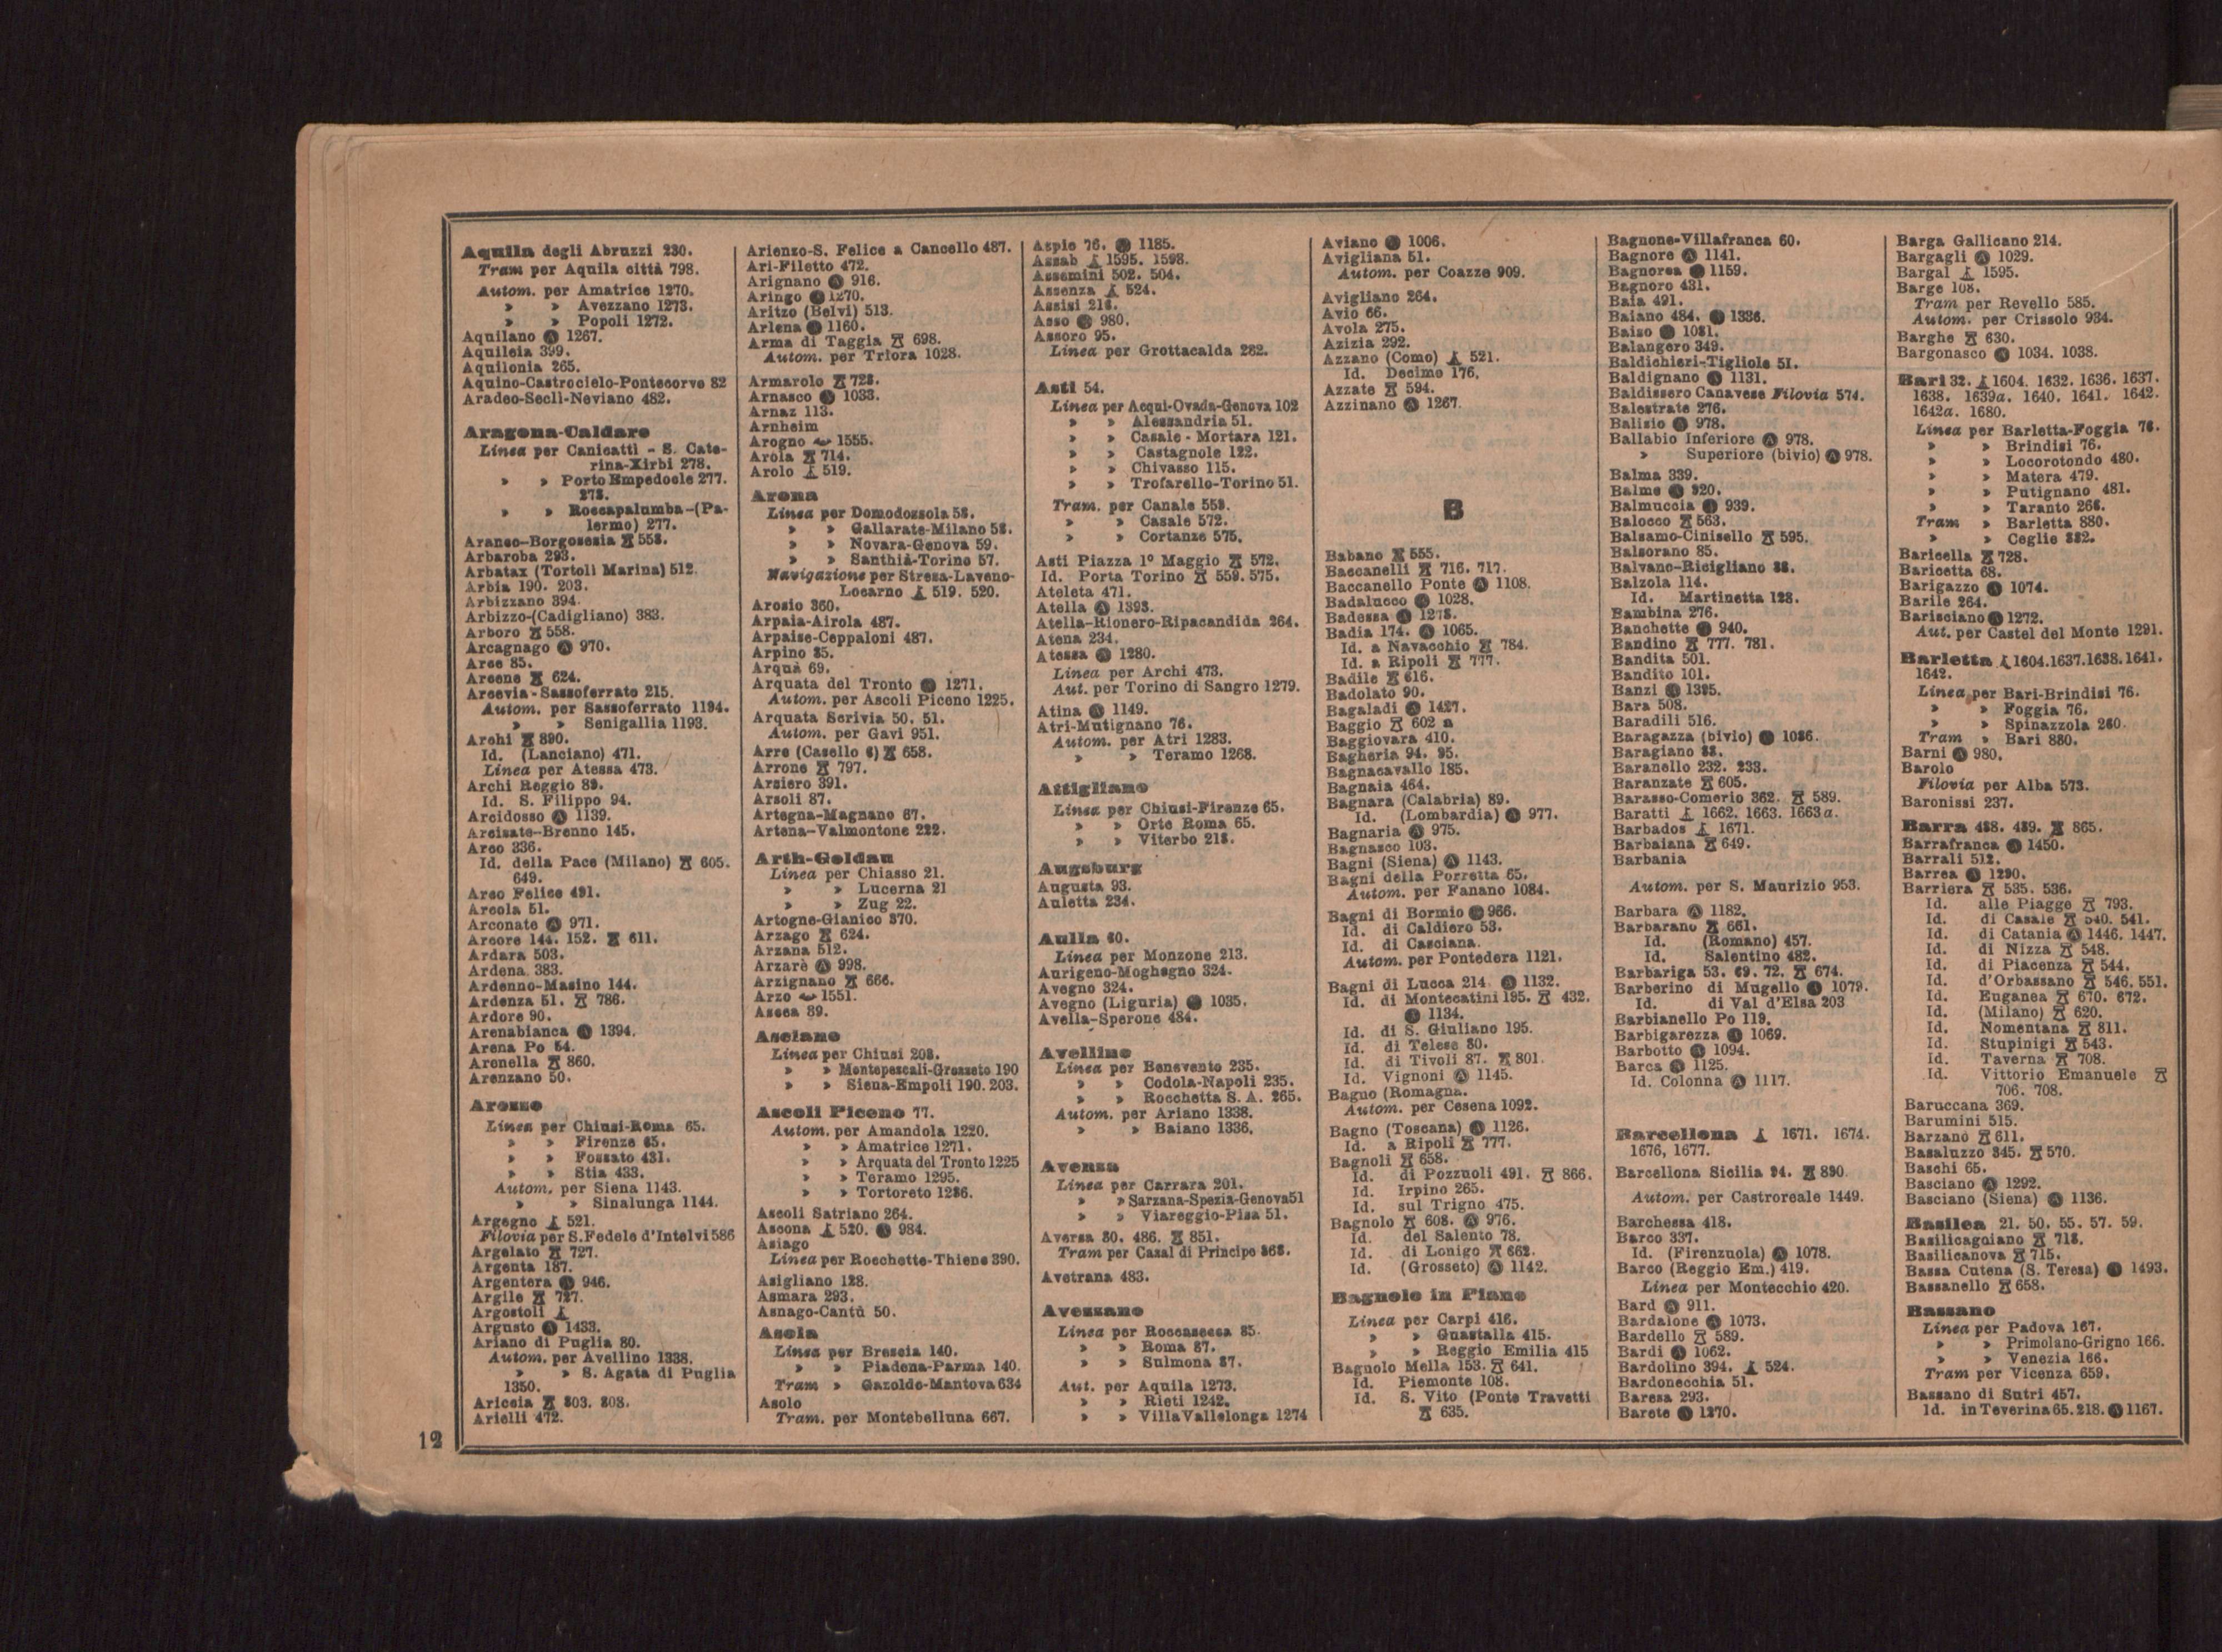 Aquila degli Abruzzi 230.
Tram per Aquila città 798.
Autom. per Amatrice 1270.
» » Avezzano 1273.
» » Popoli 1272.
Aquilano Ⓐ 1267.
Aquileia 399.
Aquilonia 265.
Aquino-Castrocielo-Pontecorvo 82
Aradeo-Seclì-Neviano 482.
Aragona-Caldare
Linea per Canicatti - S. Cate-
rina-Xirbi 278.
» » Porto Empedocle 277.
278.
» » Roccapalumba-(Pa-
lermo) 277.
Aranco-Borgosesia 558.
Arbaroba 293.
Arbatax (Tortolì Marina) 512.
Arbia 190. 203.
Arbizzano 394.
Arbizzo-(Cadigliano) 383.
Arboro 558.
Arcagnago Ⓐ 970.
Arce 85.
Arcene 624.
Arcevia-Sassoferrato 215.
Autom. per Sassoferrato 1194.
» » Senigallia 1193.
Archi 890.
Id. (Lanciano) 471.
Linea per Atessa 473.
Archi Reggio 89.
Id. S. Filippo 94.
Arcidosso Ⓐ 1139.
Arcisate-Brenno 145.
Arco 336.
Id. della Pace (Milano) 605.
649.
Arco Felice 491.
Arcola 51.
Arconate Ⓐ 971.
Arcore 144. 152. 611.
Ardara 503.
Ardena 383.
Ardenno-Masino 144.
Ardenza 51. 786.
Ardore 90.
Arenabianca Ⓐ 1394.
Arena Po 54.
Arenella 860.
Arenzano 50.
Arezzo
Linea per Chiusi-Roma 65.
» » Firenze 65.
» » Fossato 431.
» » Stia 433.
Autom. per Siena 1143.
» » Sinalunga 1144.
Argegno 521.
Filovia per S.Fedele d'Intelvi 586
Argelato 727.
Argenta 187.
Argentera Ⓐ 946.
Argile 727.
Argostoli
Argusto Ⓐ 1433.
Ariano di Puglia 80.
Autom. per Avellino 1338.
» » S. Agata di Puglia
1350.
Ariccia 803. 808.
Arielli 472.
Arienzo-S. Felice a Cancello 487.
Ari-Filetto 472.
Arignano Ⓐ 916.
Aringo Ⓐ 1270.
Aritzo (Belvì) 513.
Arlena Ⓐ 1160.
Arma di Taggia 698.
Autom. per Triora 1028.
Armarolo 728.
Arnasco Ⓐ 1033.
Arnaz 113.
Arnheim
Arogno 1555.
Arola 714.
Arolo 519.
Arona
Linea per Domodossola 58.
» » Gallarate-Milano 58.
» » Novara-Genova 59.
» » Santhià-Torino 57.
Navigazione per Stresa-Laveno-
Locarno 519. 520.
Arosio 360.
Arpaia-Airola 487.
Arpaise-Ceppaloni 487.
Arpino 85.
Arquà 69.
Arquata del Tronto Ⓐ 1271.
Autom. per Ascoli Piceno 1225.
Arquata Scrivia 50. 51.
Autom. per Gavi 951.
Arre (Casello 6) 658.
Arrone 797.
Arsiero 391.
Arsoli 87.
Artegna-Magnano 67.
Artena-Valmontone 222.
Arth-Goldau
Linea per Chiasso 21.
» » Lucerna 21
» » Zug 22.
Artogne-Gianico 370.
Arzago 624.
Arzana 512.
Arzarè Ⓐ 998.
Arzignano 666.
Arzo 1551.
Ascea 89.
Asciano
Linea per Chiusi 203.
» » Montepescali-Grosseto 190
» » Siena-Empoli 190. 203.
Ascoli Piceno 77.
Autom. per Amandola 1220.
» » Amatrice 1271.
» » Arquata del Tronto 1225
» » Teramo 1295.
» » Tortoreto 1286.
Ascoli Satriano 264.
Ascona 520. Ⓐ 984.
Asiago
Linea per Rocchette-Thiene 390.
Asigliano 128.
Asmara 293.
Asnago-Cantù 50.
Asola
Linea per Brescia 140.
» » Piadena-Parma 140.
Tram » Gazoldo-Mantova 634
Asolo
Tram. per Montebelluna 667.
Aspio 76. Ⓐ 1185.
Assab 1595. 1598.
Assemini 502. 504.
Assenza 524.
Assisi 216.
Asso Ⓐ 980.
Assoro 95.
Linea per Grottacalda 282.
Asti 54.
Linea per Acqui-Ovada-Genova 102
» » Alessandria 51.
» » Casale - Mortara 121.
» » Castagnole 122.
» » Chivasso 115.
» » Trofarello-Torino 51.
Tram. per Canale 559.
» » Casale 572.
» » Cortanze 575.
Asti Piazza 1º Maggio 572.
Id. Porta Torino 559. 575.
Ateleta 471.
Atella Ⓐ 1393.
Atella-Rionero-Ripacandida 264.
Atena 234.
Atessa Ⓐ 1280.
Linea per Archi 473.
Aut. per Torino di Sangro 1279.
Atina Ⓐ 1149.
Atri-Mutignano 76.
Autom. per Atri 1283.
» » Teramo 1268.
Attigliano
Linea per Chiusi-Firenze 65.
» » Orte Roma 65.
» » Viterbo 218.
Augsburg
Augusta 93.
Auletta 234.
Aulla 60.
Linea per Monzone 213.
Aurigeno-Moghegno 324.
Avegno 324.
Avegno (Liguria) Ⓐ 1035.
Avella-Sperone 484.
Avellino
Linea per Benevento 235.
» » Codola-Napoli 235.
» » Rocchetta S. A. 265.
Autom. per Ariano 1338.
» » Baiano 1336.
Avenza
Linea per Carrara 201.
» » Sarzana-Spezia-Genova 51
» » Viareggio-Pisa 51.
Aversa 80. 486. 851.
Tram per Casal di Principe 868.
Avetrana 483.
Avezzano
Linea per Roccasecca 85.
» » Roma 87.
» » Sulmona 87.
Aut. per Aquila 1273.
» » Rieti 1242.
» » Villa Vallelonga 1274
Aviano Ⓐ 1006.
Avigliana 51.
Autom. per Coazze 909.
Avigliano 264.
Avio 66.
Avola 275.
Azizia 292.
Azzano (Como) 521.
Id. Decimo 176.
Azzate 594.
Azzinano Ⓐ 1267.
B
Babano 555.
Baccanelli 716. 717.
Baccanello Ponte Ⓐ 1108.
Badalucco Ⓐ 1028.
Badessa Ⓐ 1278.
Badia 174. Ⓐ 1065.
Id. a Navacchio 784.
Id. a Ripoli 777.
Badile 616.
Badolato 90.
Bagaladi Ⓐ 1427.
Baggio 602 a
Baggiovara 410.
Bagheria 94. 95.
Bagnacavallo 185.
Bagnaia 464.
Bagnara (Calabria) 89.
Id. (Lombardia) Ⓐ 977.
Bagnaria Ⓐ 975.
Bagnasco 103.
Bagni (Siena) Ⓐ 1143.
Bagni della Porretta 65.
Autom. per Fanano 1084.
Bagni di Bormio Ⓐ 966.
Id. di Caldiero 53.
Id. di Casciana.
Autom. per Pontedera 1121.
Bagni di Lucca 214. Ⓐ 1132.
Id. di Montecatini 195. 432.
Ⓐ 1134.
Id. di S. Giuliano 195.
Id. di Telese 80.
Id. di Tivoli 87. 801.
Id. Vignoni Ⓐ 1145.
Bagno (Romagna.
Autom. per Cesena 1092.
Bagno (Toscana) Ⓐ 1126.
Id. a Ripoli 777.
Bagnoli 658.
Id. di Pozzuoli 491. 866.
Id. Irpino 265.
Id. sul Trigno 475.
Bagnolo 608. Ⓐ 976.
Id. del Salento 78.
Id. di Lonigo 662.
Id. (Grosseto) Ⓐ 1142.
Bagnolo in Piano
Linea per Carpi 416.
» » Guastalla 415.
» » Reggio Emilia 415
Bagnolo Mella 153. 641.
Id. Piemonte 108.
Id. S. Vito (Ponte Travetti
635.
Bagnone-Villafranca 60.
Bagnore Ⓐ 1141.
Bagnorea Ⓐ 1159.
Bagnoro 431.
Baia 491.
Baiano 484. Ⓐ 1336.
Baiso Ⓐ 1081.
Balangero 349.
Baldichieri-Tigliole 51.
Baldignano Ⓐ 1131.
Baldissero Canavese Filovia 574.
Balestrate 276.
Balisio Ⓐ 978.
Ballabio Inferiore Ⓐ 978.
» Superiore (bivio) Ⓐ 978.
Balma 339.
Balme Ⓐ 920.
Balmuccia Ⓐ 939.
Balocco 563.
Balsamo-Cinisello 595.
Balsorano 85.
Balvano-Ricigliano 88.
Balzola 114.
Id. Martinetta 128.
Bambina 276.
Banchette Ⓐ 940.
Bandino 777. 781.
Bandita 501.
Bandito 101.
Banzi Ⓐ 1395.
Bara 508.
Baradili 516.
Baragazza (bivio) Ⓐ 1086.
Baragiano 88.
Baranello 232. 233.
Baranzate 605.
Barasso-Comerio 362. 589.
Baratti 1662. 1663. 1663a.
Barbados 1671.
Barbaiana 649.
Barbania
Autom. per S. Maurizio 953.
Barbara Ⓐ 1182.
Barbarano 661.
Id. (Romano) 457.
Id. Salentino 482.
Barbariga 53. 69. 72. 674.
Barberino di Mugello Ⓐ 1079.
Id. di Val d'Elsa 203
Barbianello Po 119.
Barbigarezza Ⓐ 1069.
Barbotto Ⓐ 1094.
Barca Ⓐ 1125.
Id. Colonna Ⓐ 1117.
Barcellona 1671. 1674.
1676, 1677.
Barcellona Sicilia 94. 890.
Autom. per Castroreale 1449.
Barchessa 418.
Barco 337.
Id. (Firenzuola) Ⓐ 1078.
Barco (Reggio Em.) 419.
Linea per Montecchio 420.
Bard Ⓐ 911.
Bardalone Ⓐ 1073.
Bardello 589.
Bardi Ⓐ 1062.
Bardolino 394. 524.
Bardonecchia 51.
Baresa 293.
Barete Ⓐ 1270.
Barga Gallicano 214.
Bargagli Ⓐ 1029.
Bargal 1595.
Barge 108.
Tram per Revello 585.
Autom. per Crissolo 934.
Barghe 630.
Bargonasco Ⓐ 1034. 1038.
Bari 32. 1604. 1632. 1636. 1637.
1638. 1639a. 1640. 1641. 1642.
1642a. 1680.
Linea per Barletta-Foggia 76.
» » Brindisi 76.
» » Locorotondo 480.
» » Matera 479.
» » Putignano 481.
» » Taranto 268.
Tram » Barletta 880.
» » Ceglie 882.
Baricella 728.
Baricetta 68.
Barigazzo Ⓐ 1074.
Barile 264.
Barisciano Ⓐ 1272.
Aut. per Castel del Monte 1291.
Barletta 1604.1637.1638.1641.
1642.
Linea per Bari-Brindisi 76.
» » Foggia 76.
» » Spinazzola 260.
Tram » Bari 880.
Barni Ⓐ 980.
Barolo
Filovia per Alba 573.
Baronissi 237.
Barra 488. 489. 865.
Barrafranca Ⓐ 1450.
Barrali 512.
Barrea Ⓐ 1290.
Barriera 535. 536.
Id. alle Piagge 793.
Id. di Casale 540. 541.
Id. di Catania Ⓐ 1446. 1447.
Id. di Nizza 548.
Id. di Piacenza 544.
Id. d'Orbassano 546. 551.
Id. Euganea 670. 672.
Id. (Milano) 620.
Id. Nomentana 811.
Id. Stupinigi 543.
Id. Taverna 708.
Id. Vittorio Emanuele
706. 708.
Baruccana 369.
Barumini 515.
Barzanò 611.
Basaluzzo 345. 570.
Baschi 65.
Basciano Ⓐ 1292.
Basciano (Siena) Ⓐ 1136.
Basilea 21. 50. 55. 57. 59.
Basilicagoiano 718.
Basilicanova 715.
Bassa Cutena (S. Teresa) Ⓐ 1493.
Bassanello 658.
Bassano
Linea per Padova 167.
» » Primolano-Grigno 166.
» » Venezia 166.
Tram per Vicenza 659.
Bassano di Sutri 457.
Id. in Teverina 65. 218. Ⓐ 1167.
12